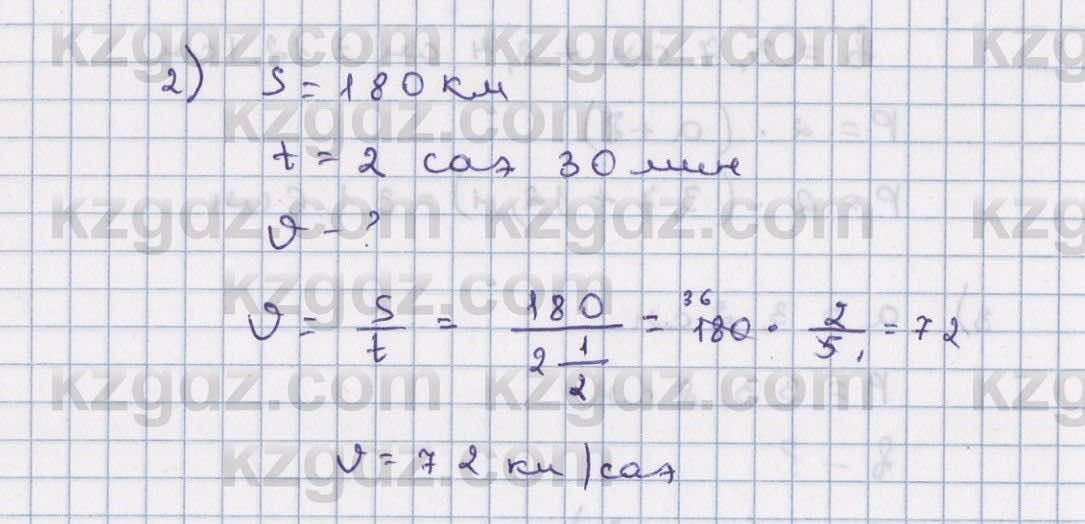 2) S = 180 км
t = 2 сағ 30 мин
υ - ?
υ = S/t = 180/(2 1/2) = 180 36 · 2/5 1 = 72
υ = 72 км/сағ
kzgdz.com kzgdz.com kzg
kzgdz.com kzgdz.com
kzgdz.com kzgdz.com kzg
kzgdz.com kzgdz.com
kzgdz.com kzgdz.com kzg
kzgdz.com kzgdz.com